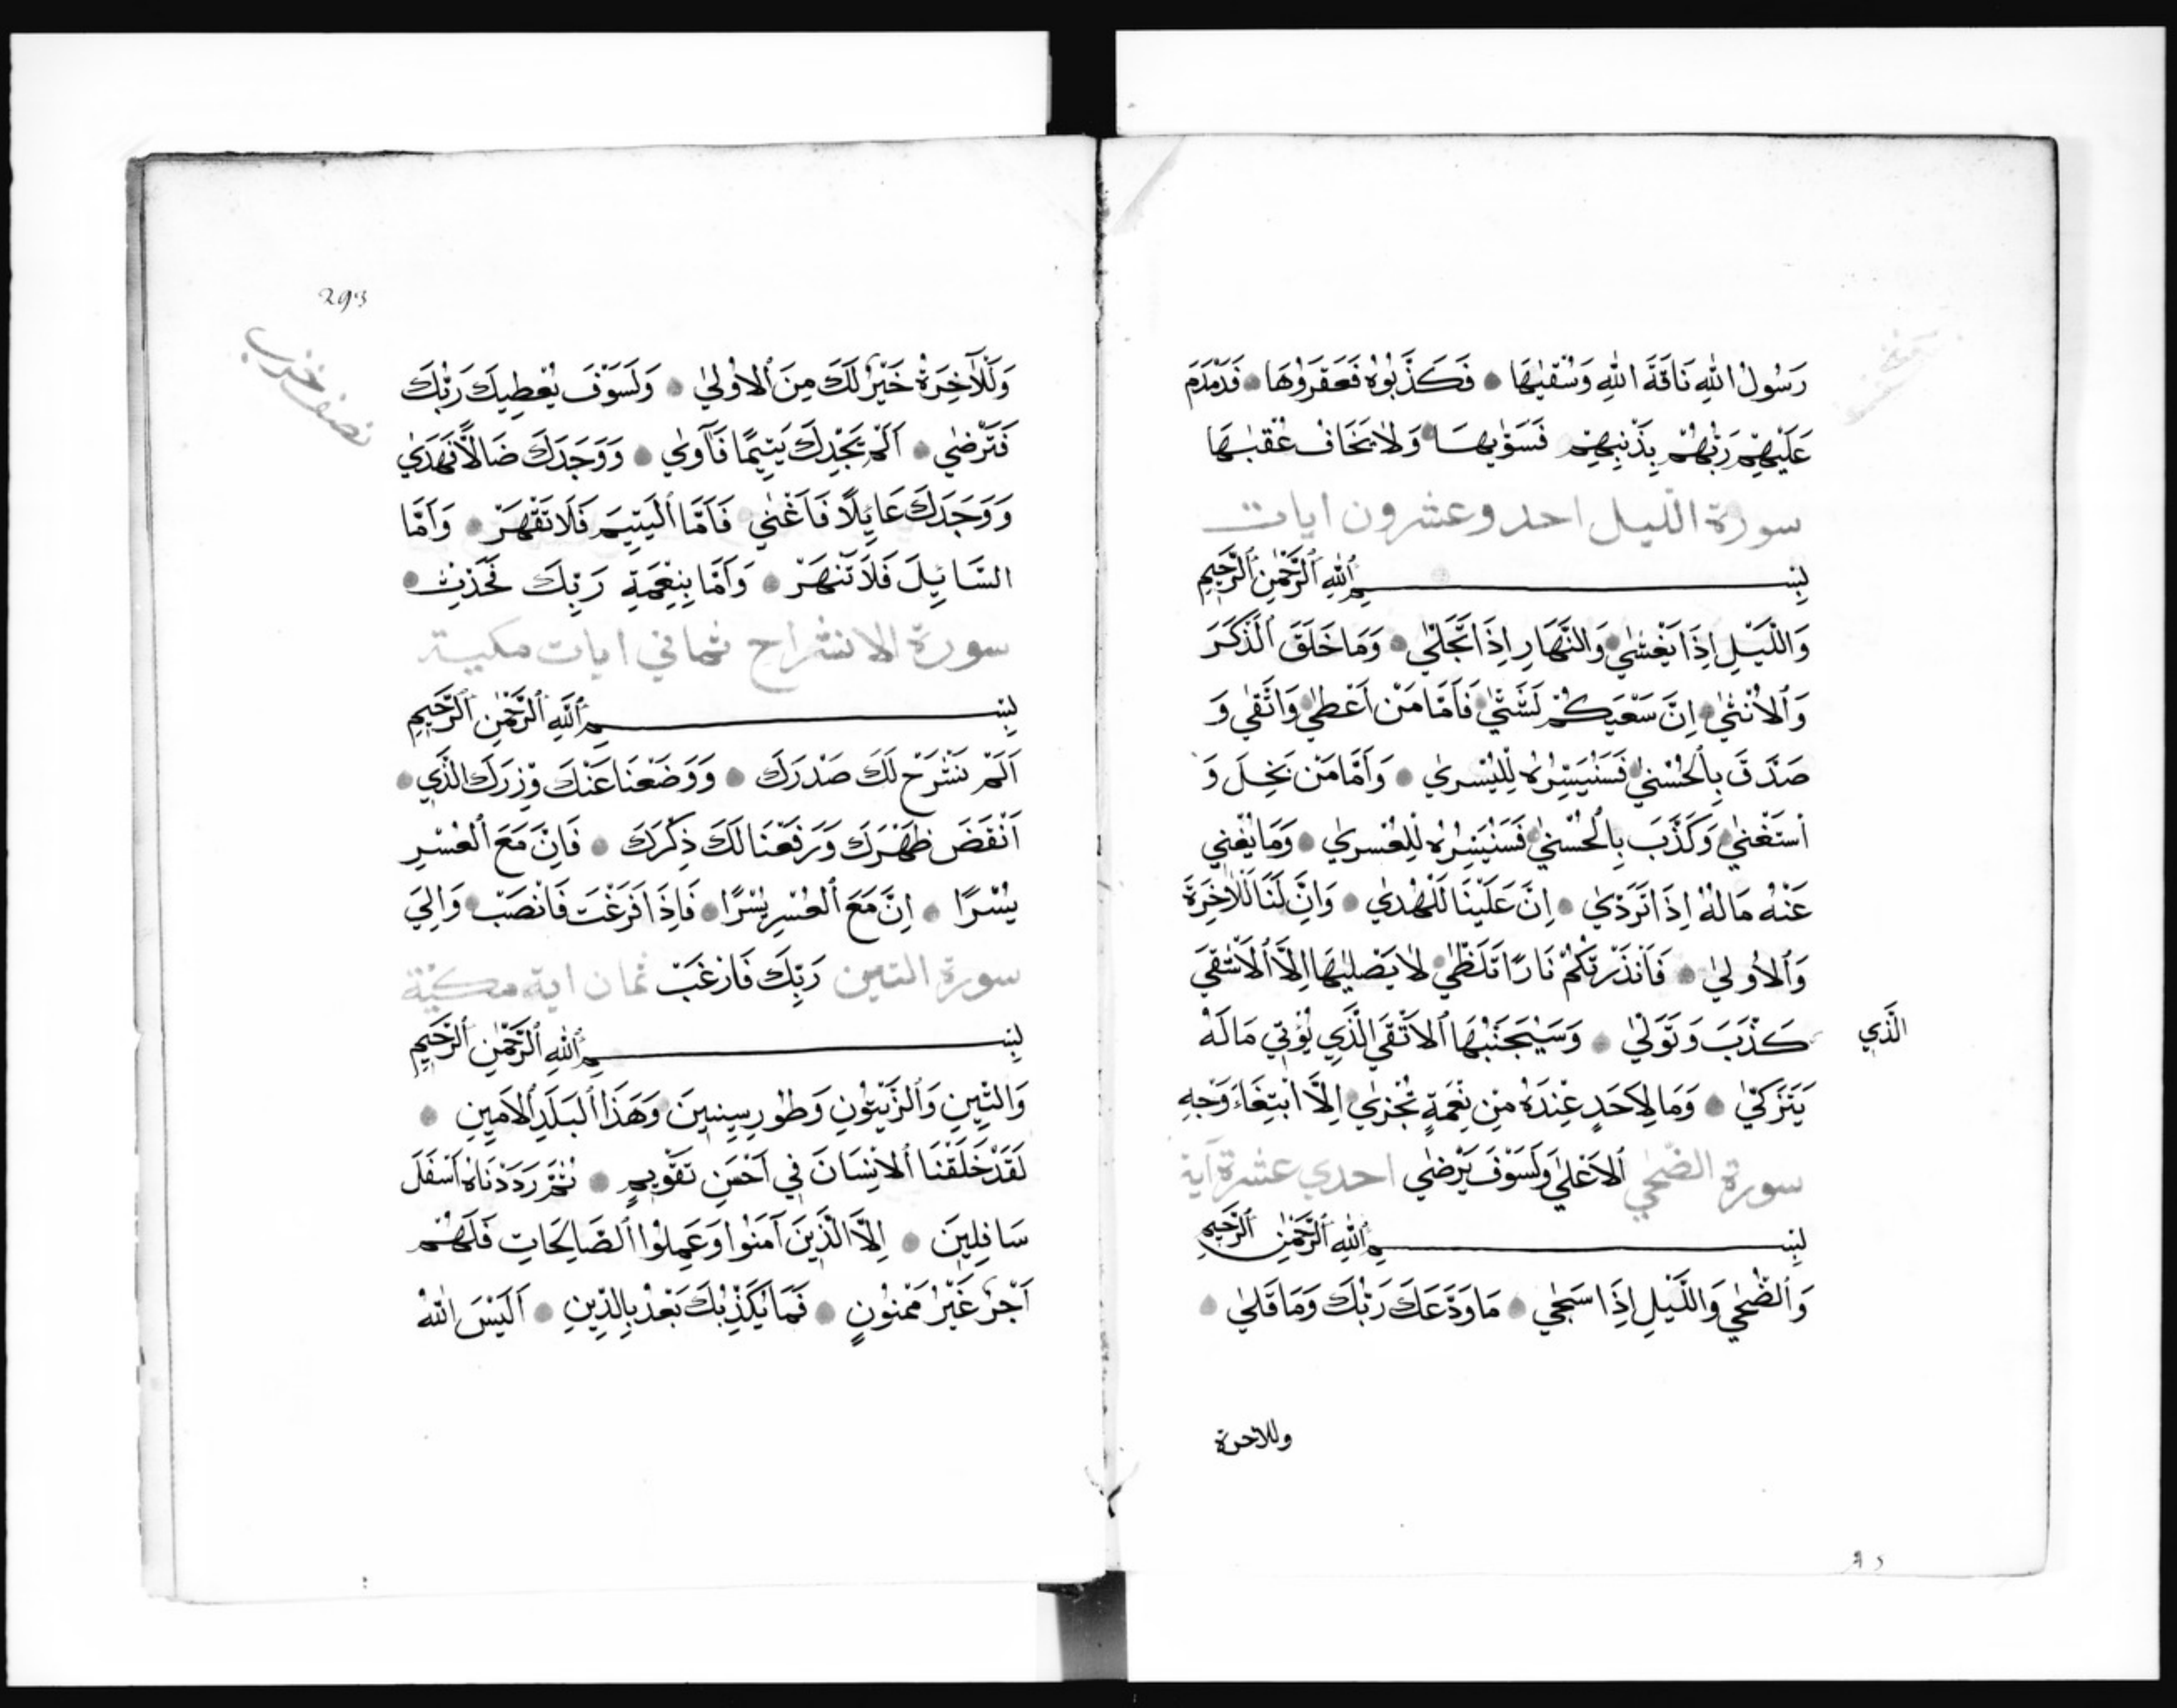 رَسُولُ اللّٰهِ نَاقَةَ اللّٰهِ وَسُقْيٰهَا فَكَذَّبُوهُ فَعَقَرُوهَا فَدَمْدَمَ
عَلَيْهِمْ رَبُّهُمْ بِذَنْبِهِمْ فَسَوّٰيهَا وَلَا يَخَافُ عُقْبٰهَا
سورة الليل احد وعشرون ايات
بِسْمِ ٱللّٰهِ ٱلرَّحْمٰنِ ٱلرَّحِيمِ
وَاللَّيْلِ اِذَا يَغْشٰي وَالنَّهَارِ اِذَا تَجَلّٰي وَمَا خَلَقَ ٱلذَّكَرَ
وَٱلْاُنْثٰي اِنَّ سَعْيَكُمْ لَشَتّٰي فَاَمَّا مَنْ اَعْطٰي وَاتَّقٰي وَ
صَدَّقَ بِٱلْحُسْنٰي فَسَنُيَسِّرُهُ لِلْيُسْرٰي وَاَمَّا مَنْ بَخِلَ وَ
اسْتَغْنٰي وَكَذَّبَ بِالْحُسْنٰي فَسَنُيَسِّرُهُ لِلْعُسْرٰي وَمَا يُغْنِي
عَنْهُ مَالُهُ اِذَا تَرَدّٰي اِنَّ عَلَيْنَا لَلْهُدٰي وَاِنَّ لَنَا لَلْاٰخِرَةَ
وَٱلْاُولٰي فَاَنْذَرْتُكُمْ نَارًا تَلَظّٰي لَا يَصْلٰيهَا اِلَّا ٱلْاَشْقَي
الَّذِي
كَذَّبَ وَتَوَلّٰي وَسَيُجَنَّبُهَا ٱلْاَتْقَي الَّذِي يُؤْتِي مَالَهُ
يَتَزَكّٰي وَمَا لِاَحَدٍ عِنْدَهُ مِنْ نِعْمَةٍ تُجْزٰي اِلَّا ابْتِغَاءَ وَجْهِ
سورة الضحي ٱلْاَعْلٰي وَلَسَوْفَ يَرْضٰي احدي عشرة آية
بِسْمِ ٱللّٰهِ ٱلرَّحْمٰنِ ٱلرَّحِيمِ
وَٱلضُّحٰي وَاللَّيْلِ اِذَا سَجٰي مَا وَدَّعَكَ رَبُّكَ وَمَا قَلٰي
وللاخرة
293
نصف حزب
وَلَلْاٰخِرَةُ خَيْرٌ لَكَ مِنَ ٱلْاُولٰي وَلَسَوْفَ يُعْطِيكَ رَبُّكَ
فَتَرْضٰي اَلَمْ يَجِدْكَ يَتِيمًا فَآوٰي وَوَجَدَكَ ضَالًّا فَهَدٰي
وَوَجَدَكَ عَايِلًا فَاَغْنٰي فَاَمَّا ٱلْيَتِيمَ فَلَا تَقْهَرْ وَاَمَّا
السَّايِلَ فَلَا تَنْهَرْ وَاَمَّا بِنِعْمَةِ رَبِّكَ فَحَدِّثْ
سورة الانشراح ثماني ايات مكية
بِسْمِ ٱللّٰهِ ٱلرَّحْمٰنِ ٱلرَّحِيمِ
اَلَمْ نَشْرَحْ لَكَ صَدْرَكَ وَوَضَعْنَا عَنْكَ وِزْرَكَ الَّذِي
اَنْقَضَ ظَهْرَكَ وَرَفَعْنَا لَكَ ذِكْرَكَ فَاِنَّ مَعَ ٱلْعُسْرِ
يُسْرًا اِنَّ مَعَ ٱلْعُسْرِ يُسْرًا فَاِذَا فَرَغْتَ فَانْصَبْ وَاِلٰيَ
سورة التين رَبِّكَ فَارْغَبْ ثمان اية مكية
بِسْمِ ٱللّٰهِ ٱلرَّحْمٰنِ ٱلرَّحِيمِ
وَالتِّينِ وَٱلزَّيْتُونِ وَطُورِ سِينِينَ وَهَذَا ٱلْبَلَدِ ٱلْاَمِينِ
لَقَدْ خَلَقْنَا ٱلْاِنْسَانَ فِي اَحْسَنِ تَقْوِيمٍ ثُمَّ رَدَدْنَاهُ اَسْفَلَ
سَافِلِينَ اِلَّا الَّذِينَ آمَنُوا وَعَمِلُوا ٱلصَّالِحَاتِ فَلَهُمْ
اَجْرٌ غَيْرُ مَمْنُونٍ فَمَا يُكَذِّبُكَ بَعْدُ بِالدِّينِ اَلَيْسَ اللّٰهُ